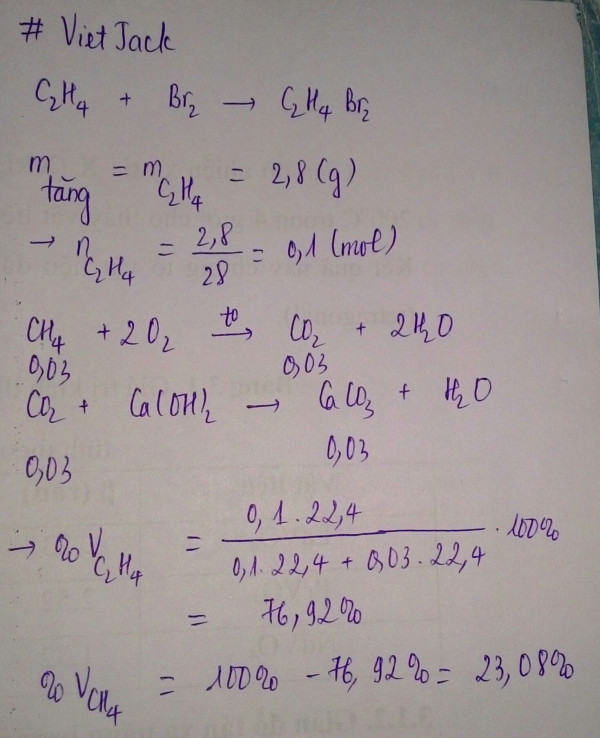 # VietJack
C₂H₄ + Br₂ → C₂H₄Br₂
m tăng = m C₂H₄ = 2,8 (g)
→ n C₂H₄ = 2,8/28 = 0,1 (mol)
CH₄ + 2O₂ →(t⁰) CO₂ + 2H₂O
0,03 0,03
CO₂ + Ca(OH)₂ → CaCO₃ + H₂O
0,03 0,03
→ %V C₂H₄ = 0,1.22,4/(0,1.22,4 + 0,03.22,4) . 100%
= 76,92%
%V CH₄ = 100% - 76,92% = 23,08%